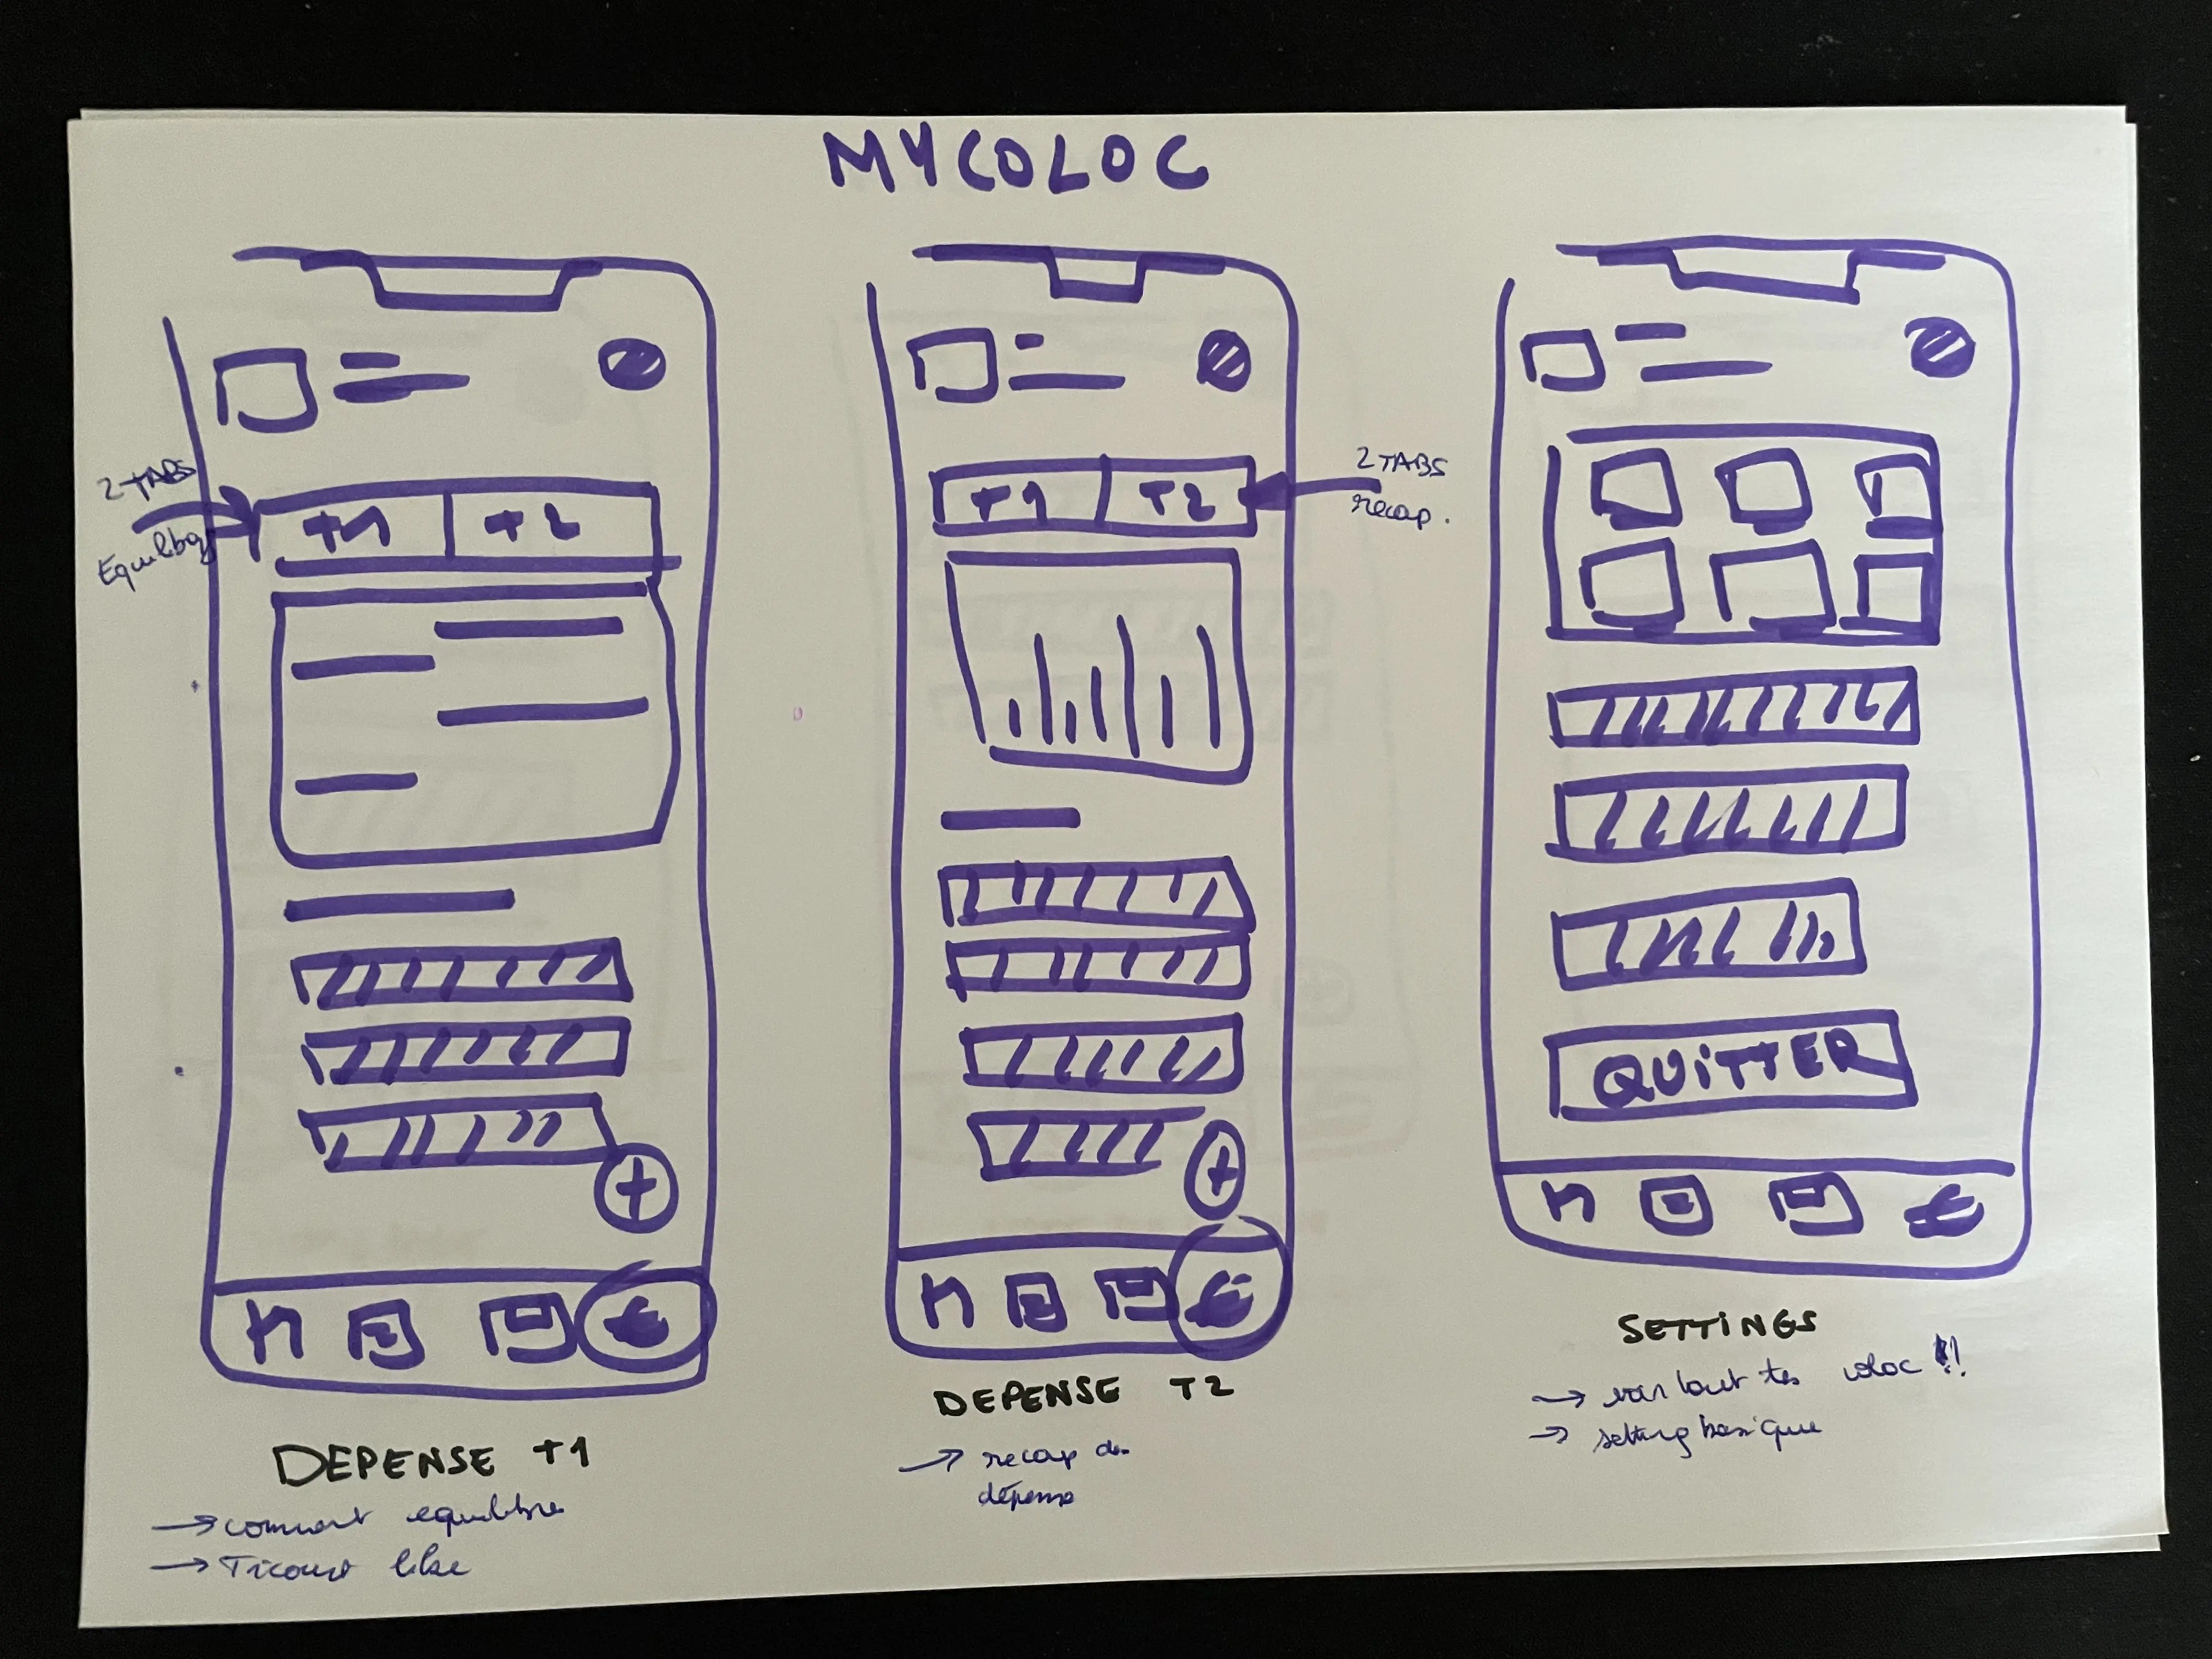 MYCOLOC
2 TABS
T1 T2
T1 T2
2 TABS
recap.
QUiTTER
DEPENSE T1
→ comment equilibre
→ Tricount like
DEPENSE T2
→ recap des
dépense
SETTiNGS
→ voir tout tes coloc !!
→ setting basique